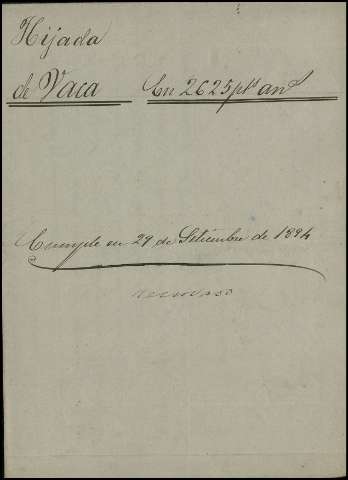 Hijada
de Vaca En 2625 pts an^s
Cumple en 29 de Setiembre de 1894